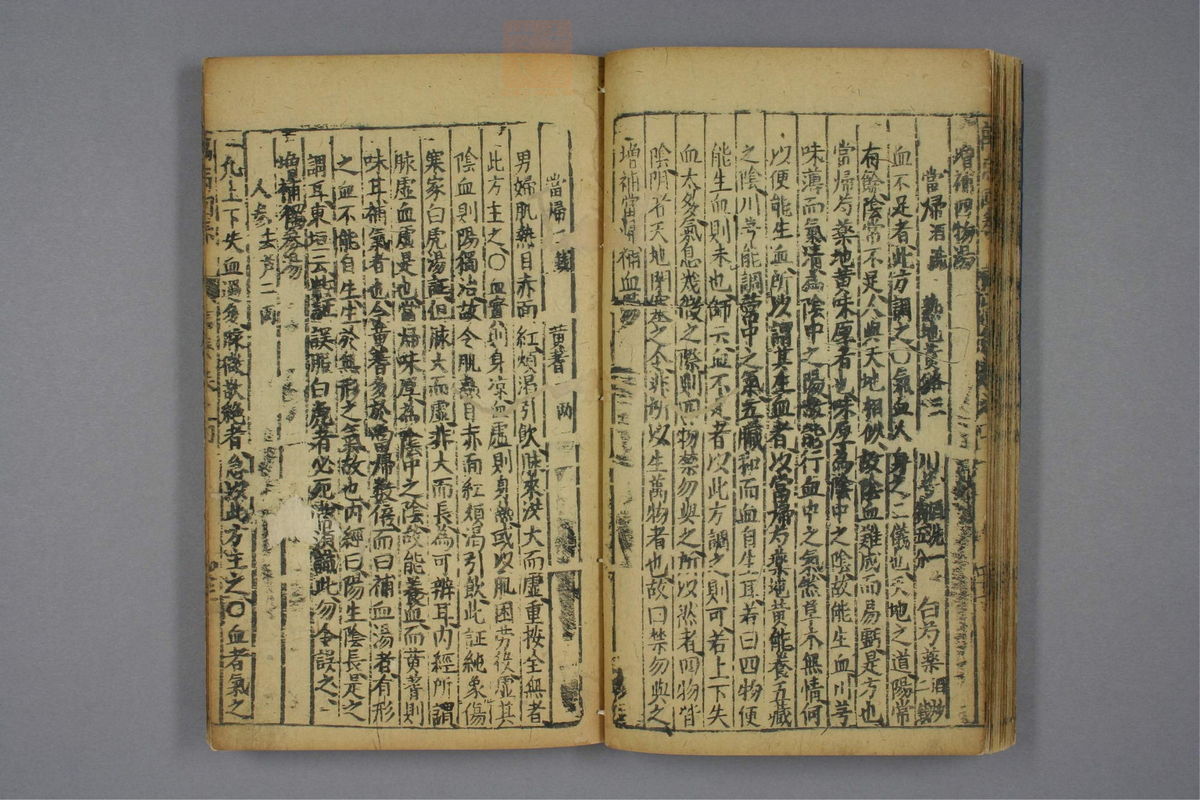 增補四物湯
當歸酒洗 熟地黃各三 川芎 白芍藥酒炒二錢
血不足者此方調之○氣血人身之二儀也天地之道陽常
有餘陰常不足人與天地相似故陰血難成而易虧是方也
當歸芍藥地黃味厚者也味厚為陰中之陰故能生血川芎
味薄而氣清為陰中之陽故能行血中之氣然草木無情何
以便能生血所以謂其生血者以當歸芍藥地黃能養五臟
之陰川芎能調營中之氣五臟和而血自生耳若曰四物便
能生血則未也師云血不足者以此方調之則可若上下失
血太多氣息幾微之際則四物禁勿與之所以然者四物皆
陰陰者天地閉塞之令非所以生萬物者也故曰禁勿與之
增補當歸補血
當歸二錢 黃蓍一兩
男婦肌熱目赤面紅煩渴引飲脉來洪大而虛重按全無者
此方主之○血實則身涼血虛則身熱或以肌困勞役虛其
陰血則陽獨治故令肌熱目赤面紅煩渴引飲此証純象傷
寒家白虎湯証但脉大而虛非大而長為可辨耳內經所謂
脉虛血虛是也當歸味厚為陰中之陰故能養血而黃蓍則
味耳補氣者也今黃蓍多於當歸數倍而曰補血湯者有形
之血不能自生生於無形之氣故也內經曰陽生陰長是之
謂耳東垣云此証誤服白虎者必死當識此勿令誤之
增補獨參湯
人參去芦二兩
凡上下失血過多脉微欲絕者急以此方主之○血者氣之